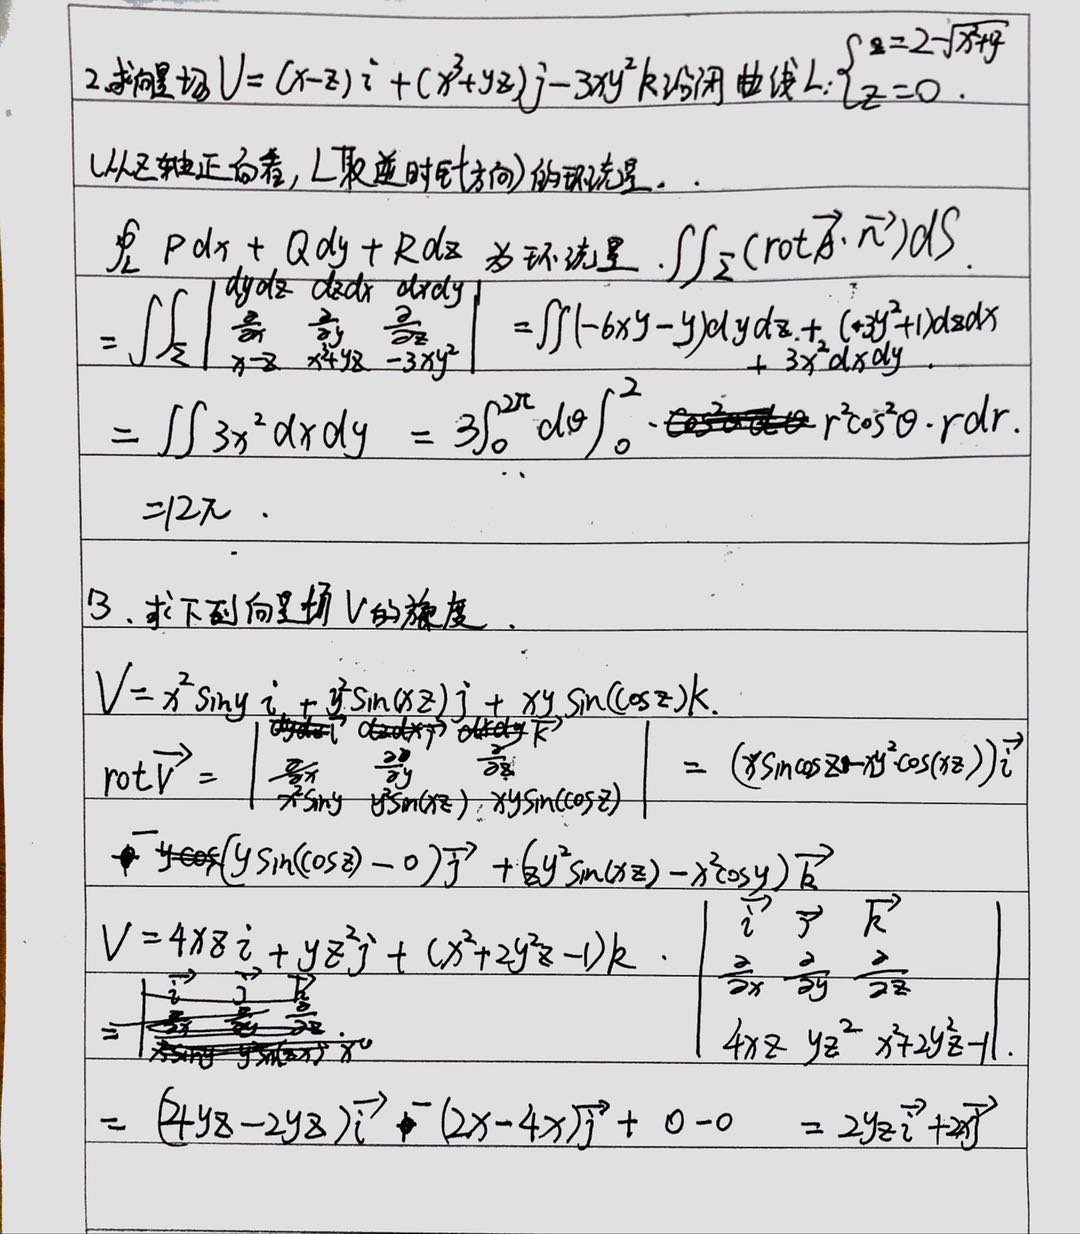 2.求向量场 V=(x-z)i+(x³+yz)j-3xy²k沿闭曲线L:{z=2-√x²+y² z=0.
(从z轴正向看,L取逆时针方向)的环流量.
∮_L Pdx+Qdy+Rdz 为环流量.∬_Σ(rotA·n)dS.
=∬_Σ | dydz dzdx dxdy ; ∂/∂x ∂/∂y ∂/∂z ; x-z x³+yz -3xy² | =∬(-6xy-y)dydz+(+3y²+1)dzdx
+3x²dxdy.
=∬3x²dxdy =3∫₀^2π dθ∫₀² · r²cos²θ·rdr.
=12π.
3.求下列向量场V的旋度.
V=x²siny i+y²sin(xz)j+xy sin(cosz)k.
rotV= | i j k ; ∂/∂x ∂/∂y ∂/∂z ; x²siny y²sin(xz) xysin(cosz) | =(xsincosz-xy²cos(xz))i
-(ysin(cosz)-0)j+(zy²sin(xz)-x²cosy)k
V=4xzi+yz²j+(x²+2y²z-1)k. | i j k ; ∂/∂x ∂/∂y ∂/∂z ; 4xz yz² x²+2y²z-1 |.
=(4yz-2yz)i-(2x-4x)j+0-0 =2yzi+2xj